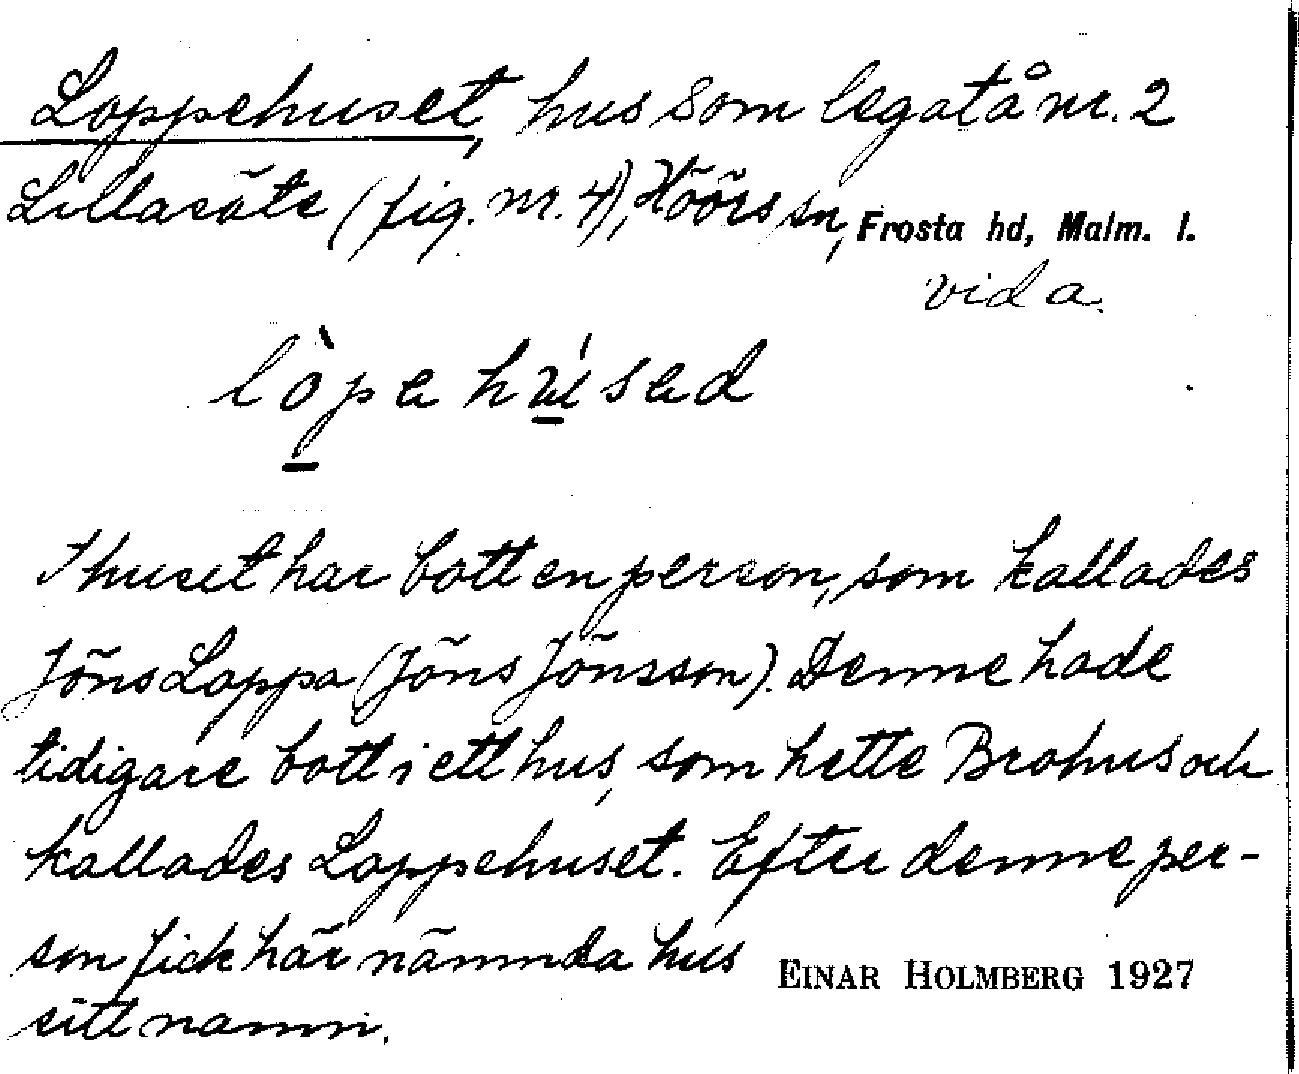 Loppehuset, hus som legat å nr. 2
Lillasäte (fig. nr. 4), Höörs sn, Frosta hd, Malm. l.
vid a.
lòpehúsed
I huset har bott en person, som kallades
Jöns Loppa (Jöns Jönsson). Denne hade
tidigare bott i ett hus, som hette Brohus och
kallades Loppehuset. Efter denne per-
son fick här nämnda hus
sitt namn.
EINAR HOLMBERG 1927